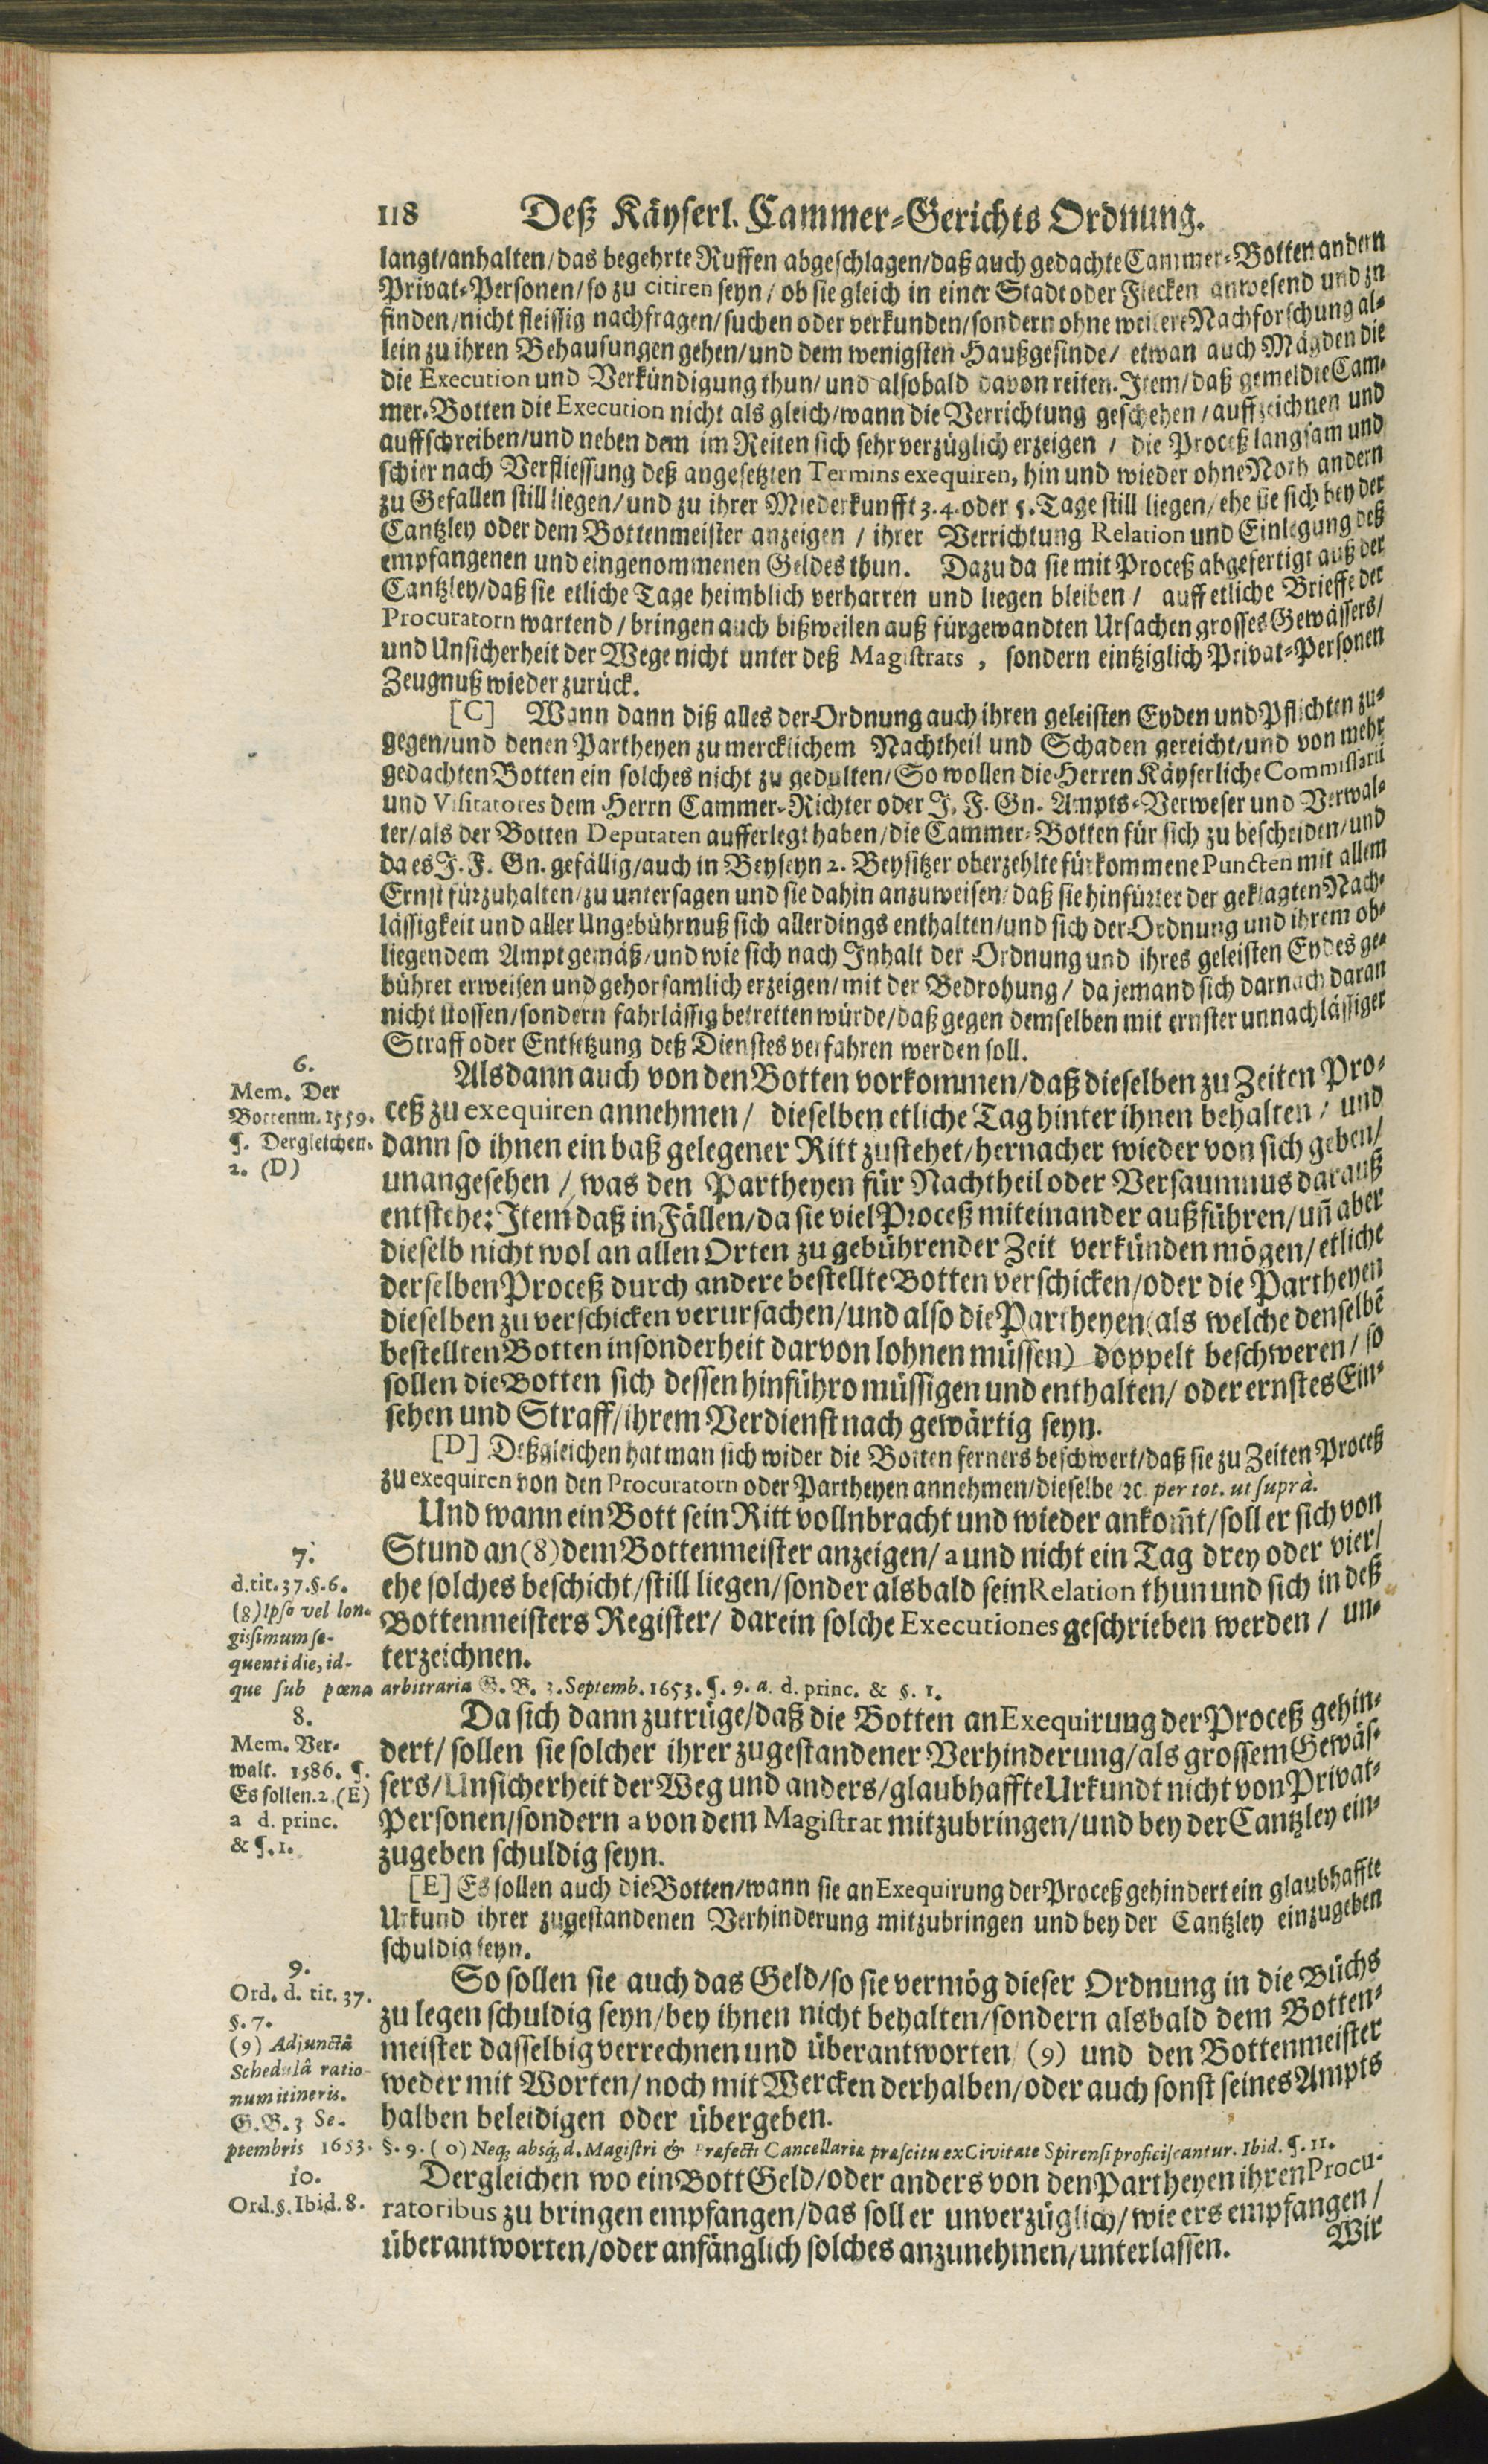 118 Deß Käyserl. Cammer-Gerichts Ordnung.
langt/anhalten/das begehrte Ruffen abgeschlagen/daß auch gedachte Cammer-Botten andern
Privat-Personen/so zu citiren seyn/ ob sie gleich in einer Stadt oder Flecken anwesend und zu
finden/nicht fleissig nachfragen/suchen oder verkunden/sondern ohne weitere Nachforschung al-
lein zu ihren Behausungen gehen/und dem wenigsten Haußgesinde/ etwan auch Mägden die
die Execution und Verkündigung thun/ und alsobald davon reiten. Item/daß gemeldte Cam-
mer-Botten die Execution nicht als gleich/wann die Verrichtung geschehen/auffzeichnen und
auffschreiben/und neben dem im Reiten sich sehr verzüglich erzeigen / die Proceß langsam und
schier nach Verfliessung deß angesetzten Termins exequiren, hin und wieder ohne Noth andern
zu Gefallen still liegen/und zu ihrer Miederkunfft 3. 4. oder 5. Tage still liegen/ehe sie sich bey der
Cantzley oder dem Bottenmeister anzeigen / ihrer Verrichtung Relation und Einlegung deß
empfangenen und eingenommenen Geldes thun. Dazu da sie mit Proceß abgefertigt auß der
Cantzley/daß sie etliche Tage heimblich verharren und liegen bleiben / auff etliche Brieffe der
Procuratorn wartend/bringen auch bißweilen auß fürgewandten Ursachen grosses Gewässers/
und Unsicherheit der Wege nicht unter deß Magistrats , sondern eintziglich Privat-Personen
Zeugnuß wieder zurück.
[C] Wann dann diß alles der Ordnung auch ihren geleisten Eyden und Pflichten zu-
gegen/und denen Partheyen zu mercklichem Nachtheil und Schaden gereicht/und von mehr
gedachten Botten ein solches nicht zu gedulten/So wollen die Herren Käyserliche Commissarii
und Visitatores dem Herrn Cammer-Richter oder J. F. Gn. Ampts-Verweser und Verwal-
ter/als der Botten Deputaten aufferlegt haben/die Cammer-Botten für sich zu bescheiden/und
da es J. F. Gn. gefällig/auch in Beyseyn 2. Beysitzer oberzehlte fürkommene Puncten mit allem
Ernst fürzuhalten/zu untersagen und sie dahin anzuweisen/daß sie hinfürter der geklagten Nach-
lässigkeit und aller Ungebührnuß sich allerdings enthalten/und sich der Ordnung und ihrem ob-
liegendem Ampt gemäß/und wie sich nach Inhalt der Ordnung und ihres geleisten Eydes ge-
bühret erweisen und gehorsamlich erzeigen/mit der Bedrohung / da jemand sich darnach daran
nicht stossen/sondern fahrlässig betretten würde/daß gegen demselben mit ernster unnachlässiger
Straff oder Entsetzung deß Dienstes verfahren werden soll.
6.
Mem. Der
Bottenm. 1559.
¶. Dergleichen.
2. (D)
Als dann auch von den Botten vorkommen/daß dieselben zu Zeiten Pro-
ceß zu exequiren annehmen / dieselben etliche Tag hinter ihnen behalten / und
dann so ihnen ein baß gelegener Ritt zustehet/hernacher wieder von sich geben/
unangesehen / was den Partheyen für Nachtheil oder Versaumnus darauß
entstehe: Item daß in Fällen/da sie viel Proceß miteinander außführen/uñ aber
dieselb nicht wol an allen Orten zu gebührender Zeit verkünden mögen/etliche
derselben Proceß durch andere bestellte Botten verschicken/oder die Partheyen
dieselben zu verschicken verursachen/und also die Partheyen (als welche denselbē
bestellten Botten insonderheit darvon lohnen müssen) doppelt beschweren/ so
sollen die Botten sich dessen hinführo müssigen und enthalten/ oder ernstes Ein-
sehen und Straff/ihrem Verdienst nach gewärtig seyn.
[D] Deßgleichen hat man sich wider die Botten ferners beschwert/daß sie zu Zeiten Proceß
zu exequiren von den Procuratorn oder Partheyen annehmen/dieselbe ꝛc per tot. ut suprà.
7.
d. tit. 37. §. 6.
(8) Ipso vel lon-
gissimum se-
quenti die, id-
que sub pœna arbitraria G. B. 3. Septemb. 1653. ¶. 9. a. d. princ. & §. 1.
Und wann ein Bott sein Ritt vollnbracht und wieder ankom̃t/soll er sich von
Stund an (8) dem Bottenmeister anzeigen/ a und nicht ein Tag drey oder vier/
ehe solches beschicht/still liegen/sonder alsbald sein Relation thun und sich in deß
Bottenmeisters Register/ darein solche Executiones geschrieben werden / un-
terzeichnen.
8.
Mem. Ver-
walt. 1586. ¶.
Es sollen. 2. (E)
a d. princ.
& ¶. 1.
Da sich dann zutrüge/daß die Botten an Exequirung der Proceß gehin-
dert/ sollen sie solcher ihrer zugestandener Verhinderung/als grossem Gewäs-
sers/Unsicherheit der Weg und anders/glaubhaffte Urkundt nicht von Privat-
Personen/sondern a von dem Magistrat mitzubringen/und bey der Cantzley ein-
zugeben schuldig seyn.
[E] Es sollen auch die Botten/wann sie an Exequirung der Proceß gehindert ein glaubhaffte
Urkund ihrer zugestandenen Verhinderung mitzubringen und bey der Cantzley einzugeben
schuldig seyn.
9.
Ord. d. tit. 37.
§. 7.
(9) Adjunctâ
Schedulâ ratio-
num itineris.
G. B. 3 Se-
ptembris 1653. §. 9. ( 0) Neq; absq; d. Magistri & Præfecti Cancellariæ præscitu ex Civitate Spirensi proficiscantur. Ibid. ¶. 11.
So sollen sie auch das Geld/so sie vermög dieser Ordnung in die Büchs
zu legen schuldig seyn/bey ihnen nicht behalten/sondern alsbald dem Botten-
meister dasselbig verrechnen und überantworten (9) und den Bottenmeister
weder mit Worten/noch mit Wercken derhalben/oder auch sonst seines Ampts
halben beleidigen oder übergeben.
10.
Ord. §. Ibid. 8.
Dergleichen wo ein Bott Geld/oder anders von den Partheyen ihren Procu-
ratoribus zu bringen empfangen/das soll er unverzüglich/wie ers empfangen/
überantworten/oder anfänglich solches anzunehmen/unterlassen.
Wir